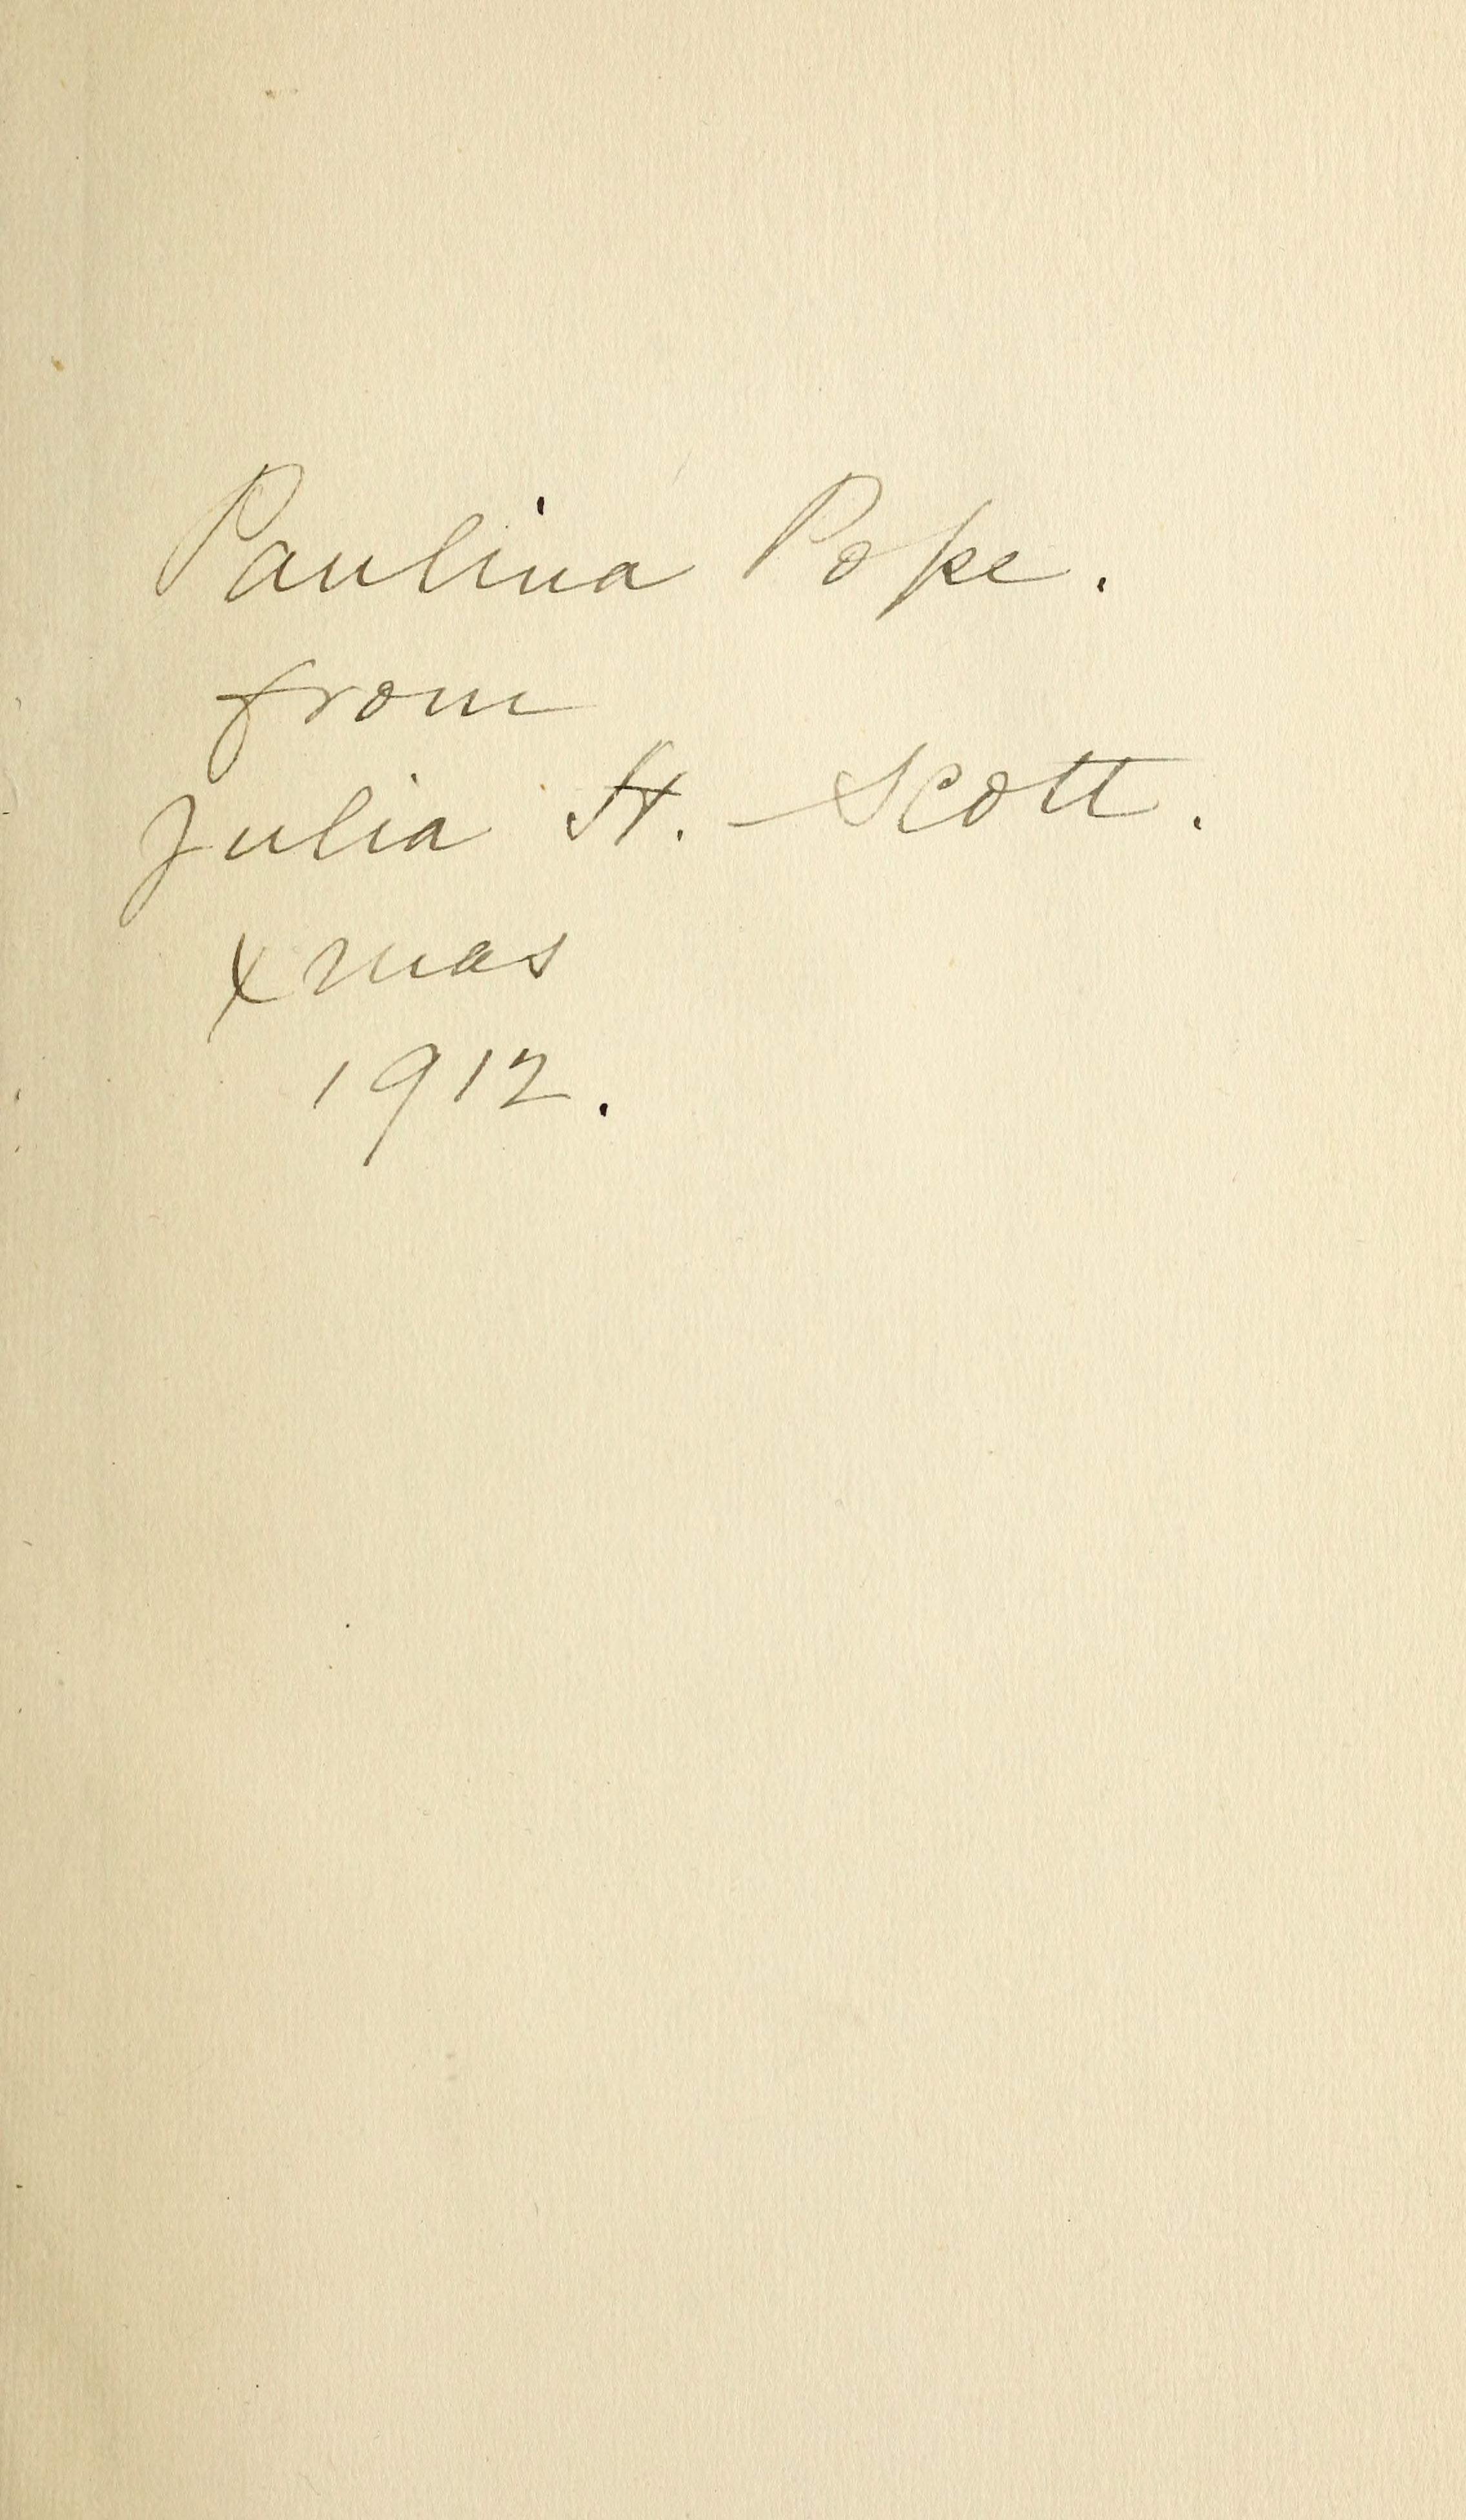 Paulina Pope.
from
Julia H. Scott.
Xmas
1912.